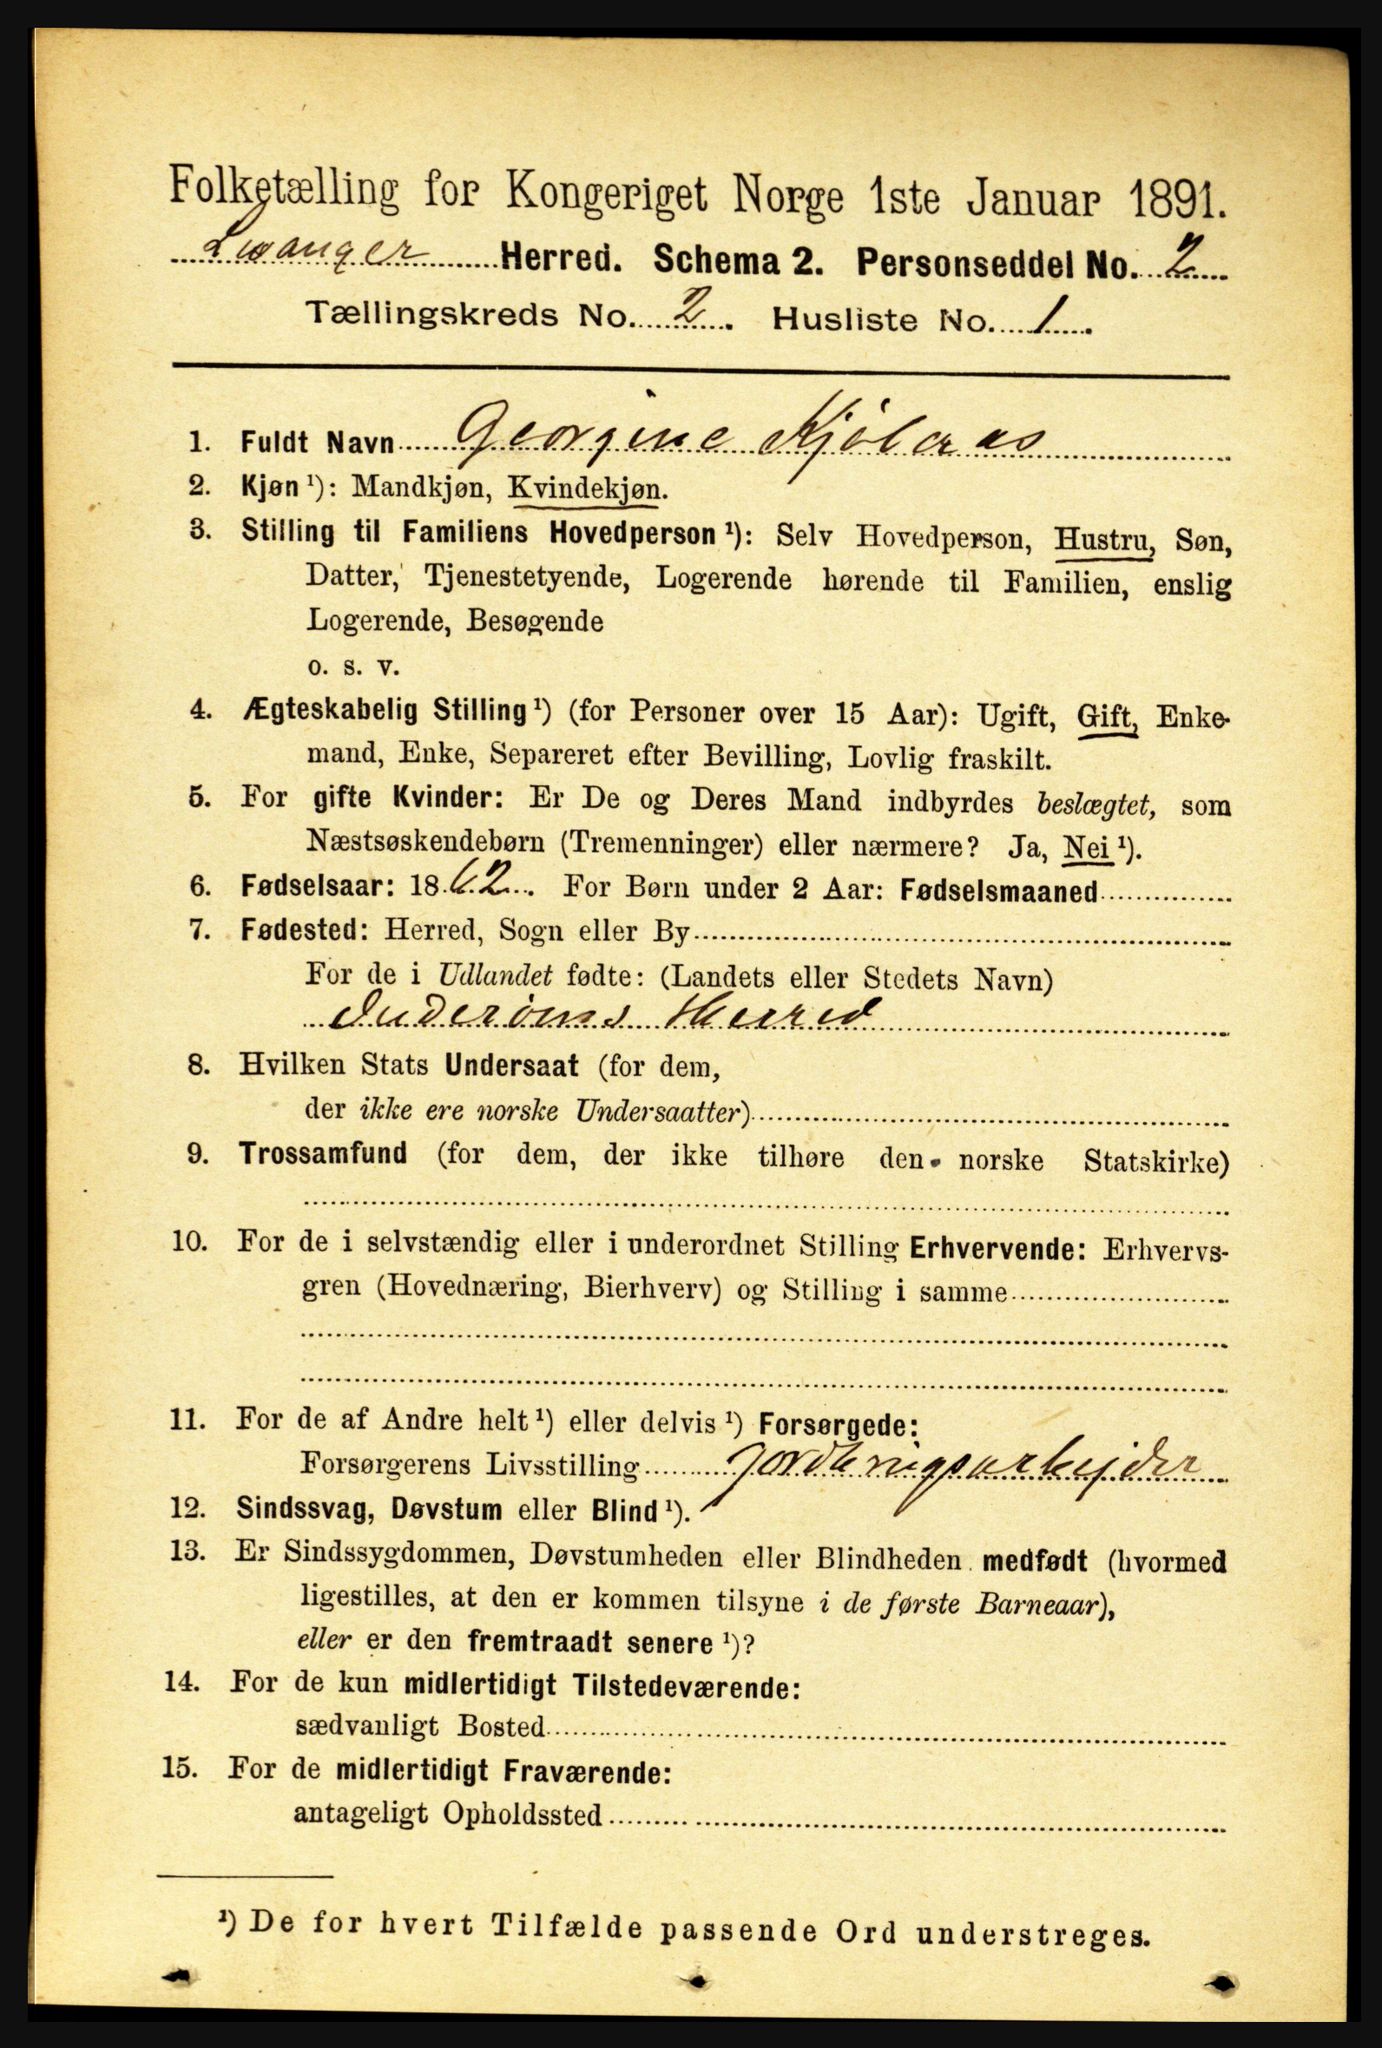 Folketælling for Kongeriget Norge 1ste Januar 1891.
Levanger Herred. Schema 2. Personseddel No. 2
Tællingskreds No. 2. Husliste No. 1.
1. Fuldt Navn Georgine Kjøleraas
2. Kjøn ¹): Mandkjøn, Kvindekjøn.
3. Stilling til Familiens Hovedperson ¹): Selv Hovedperson, Hustru, Søn,
Datter, Tjenestetyende, Logerende hørende til Familien, enslig
Logerende, Besøgende
o. s. v.
4. Ægteskabelig Stilling ¹) (for Personer over 15 Aar): Ugift, Gift, Enke-
mand, Enke, Separeret efter Bevilling, Lovlig fraskilt.
5. For gifte Kvinder: Er De og Deres Mand indbyrdes beslægtet, som
Næstsøskendebørn (Tremenninger) eller nærmere? Ja, Nei ¹).
6. Fødselsaar: 1862. For Børn under 2 Aar: Fødselsmaaned
7. Fødested: Herred, Sogn eller By
For de i Udlandet fødte: (Landets eller Stedets Navn)
Inderøens Herred
8. Hvilken Stats Undersaat (for dem,
der ikke ere norske Undersaatter)
9. Trossamfund (for dem, der ikke tilhøre den norske Statskirke)
10. For de i selvstændig eller i underordnet Stilling Erhvervende: Erhvervs-
gren (Hovednæring, Bierhverv) og Stilling i samme
11. For de af Andre helt ¹) eller delvis ¹) Forsørgede:
Forsørgerens Livsstilling
12. Sindssvag, Døvstum eller Blind ¹).
13. Er Sindssygdommen, Døvstumheden eller Blindheden medfødt (hvormed
ligestilles, at den er kommen tilsyne i de første Barneaar),
eller er den fremtraadt senere ¹)?
14. For de kun midlertidigt Tilstedeværende:
sædvanligt Bosted
15. For de midlertidigt Fraværende:
antageligt Opholdssted
¹) De for hvert Tilfælde passende Ord understreges.